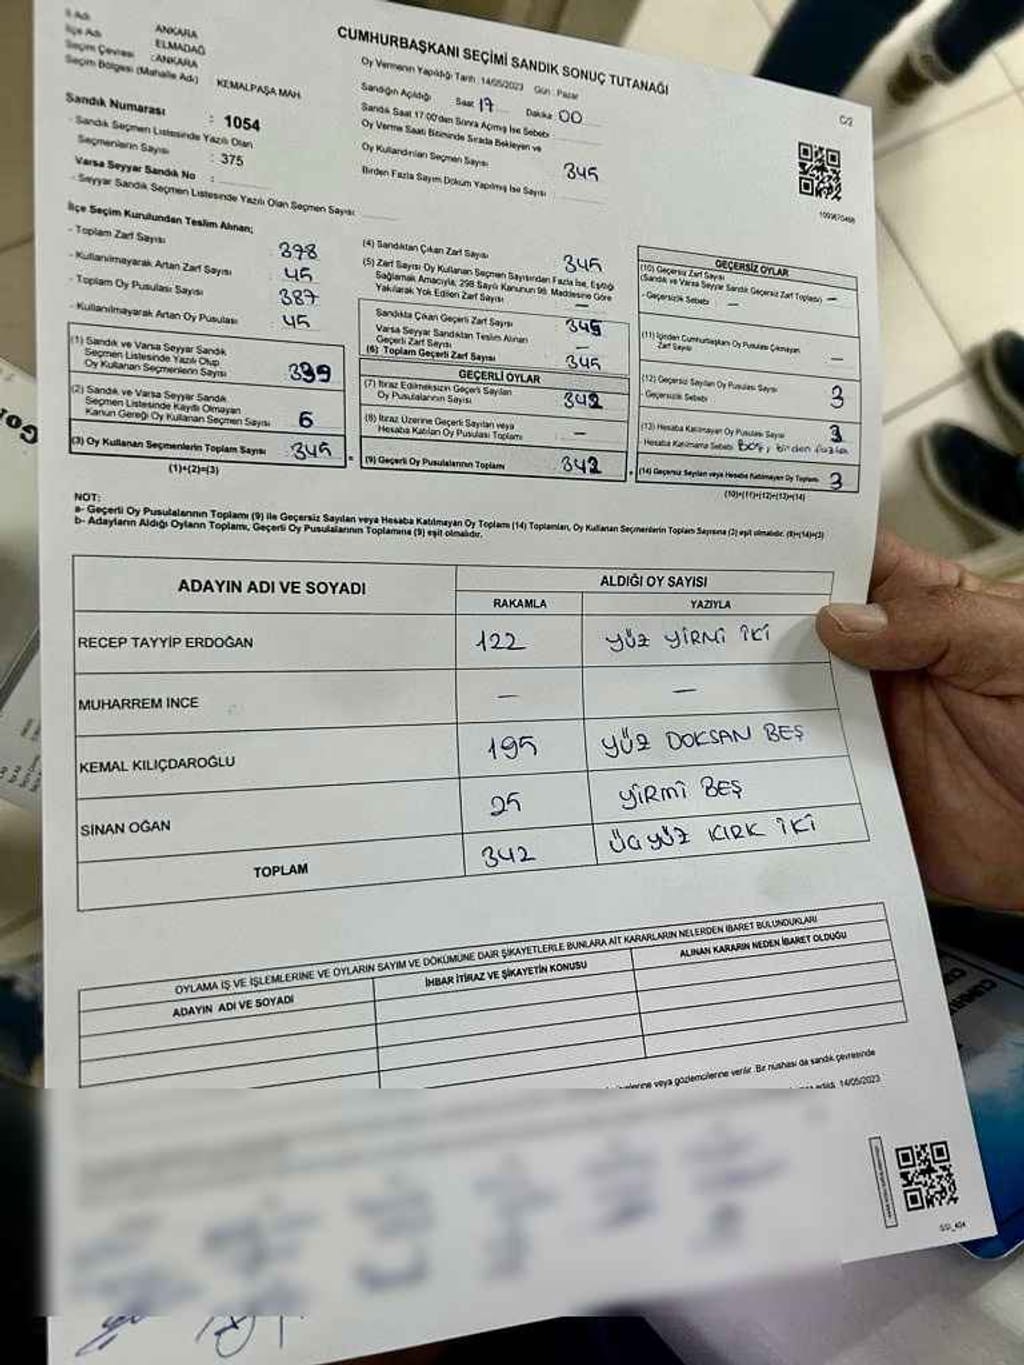 İli Adı ANKARA
İlçe Adı ELMADAĞ
Seçim Çevresi : ANKARA
Seçim Bölgesi (Mahalle Adı) KEMALPAŞA MAH.
Sandık Numarası : 1054
- Sandık Seçmen Listesinde Yazılı Olan
Seçmenlerin Sayısı : 375
Varsa Seyyar Sandık No :
- Seyyar Sandık Seçmen Listesinde Yazılı Olan Seçmen Sayısı
CUMHURBAŞKANI SEÇİMİ SANDIK SONUÇ TUTANAĞI
Oy Vermenin Yapıldığı Tarih : 14/05/2023 Gün : Pazar
Sandığın Açıldığı Saat 17 Dakika : 00
Sandık Saat 17:00'den Sonra Açılmış İse Sebebi
Oy Verme Saati Bitiminde Sırada Bekleyen ve
Oy Kullandırılan Seçmen Sayısı 345
Birden Fazla Sayım Döküm Yapılmış İse Sayısı
C/2
İlçe Seçim Kurulundan Teslim Alınan;
- Toplam Zarf Sayısı 378
- Kullanılmayarak Artan Zarf Sayısı 45
- Toplam Oy Pusulası Sayısı 387
- Kullanılmayarak Artan Oy Pusulası 45
(1) Sandık ve Varsa Seyyar Sandık
Seçmen Listesinde Yazılı Olup
Oy Kullanan Seçmenlerin Sayısı 339
(2) Sandık ve Varsa Seyyar Sandık
Seçmen Listesinde Kayıtlı Olmayan
Kanun Gereği Oy Kullanan Seçmen Sayısı 6
(3) Oy Kullanan Seçmenlerin Toplam Sayısı 345
(1)+(2)=(3)
(4) Sandıktan Çıkan Zarf Sayısı 345
(5) Zarf Sayısı Oy Kullanan Seçmen Sayısından Fazla İse, Eşitliği
Sağlamak Amacıyla, 298 Sayılı Kanunun 98. Maddesine Göre
Yakılarak Yok Edilen Zarf Sayısı —
Sandıkta Çıkan Geçerli Zarf Sayısı 345
Varsa Seyyar Sandıktan Teslim Alınan
Geçerli Zarf Sayısı —
(6) Toplam Geçerli Zarf Sayısı 345
GEÇERLİ OYLAR
(7) İtiraz Edilmeksizin Geçerli Sayılan
Oy Pusulasının Sayısı 342
(8) İtiraz Üzerine Geçerli Sayılan veya
Hesaba Katılan Oy Pusulası Toplamı —
(9) Geçerli Oy Pusulalarının Toplamı 342
GEÇERSİZ OYLAR
(10) Geçersiz Zarf Sayısı
(Sandık ve Varsa Seyyar Sandık Geçersiz Zarf Toplamı) —
- Geçersizlik Sebebi : —
(11) İçinden Cumhurbaşkanı Oy Pusulası Çıkmayan
Zarf Sayısı —
(12) Geçersiz Sayılan Oy Pusulası Sayısı 3
- Geçersizlik Sebebi
(13) Hesaba Katılmayan Oy Pusulası Sayısı 3
Hesaba Katılmama Sebebi Boş, birden fazla
(14) Geçersiz Sayılan veya Hesaba Katılmayan Oy Toplamı 3
(10)+(11)+(12)+(13)=(14)
NOT:
a- Geçerli Oy Pusulalarının Toplamı (9) ile Geçersiz Sayılan veya Hesaba Katılmayan Oy Toplamı (14) Toplamları, Oy Kullanan Seçmenlerin Toplam Sayısına (3) eşit olmalıdır. (9)+(14)=(3)
b- Adayların Aldığı Oyların Toplamı, Geçerli Oy Pusulalarının Toplamına (9) eşit olmalıdır.
ADAYIN ADI VE SOYADI ALDIĞI OY SAYISI
RAKAMLA YAZIYLA
RECEP TAYYİP ERDOĞAN 122 YÜZ YİRMİ İKİ
MUHARREM İNCE — —
KEMAL KILIÇDAROĞLU 195 YÜZ DOKSAN BEŞ
SİNAN OĞAN 25 YİRMİ BEŞ
TOPLAM 342 ÜÇ YÜZ KIRK İKİ
OYLAMA İŞ VE İŞLEMLERİNE VE OYLARIN SAYIM VE DÖKÜMÜNE DAİR ŞİKAYETLERLE BUNLARA AİT KARARLARIN NELERDEN İBARET BULUNDUKLARI
ADAYIN ADI VE SOYADI İHBAR İTİRAZ VE ŞİKAYETİN KONUSU ALINAN KARARIN NEDEN İBARET OLDUĞU
veya gözlemcilerine verilir. Bir nüshası da sandık çevresinde
14/05/2023